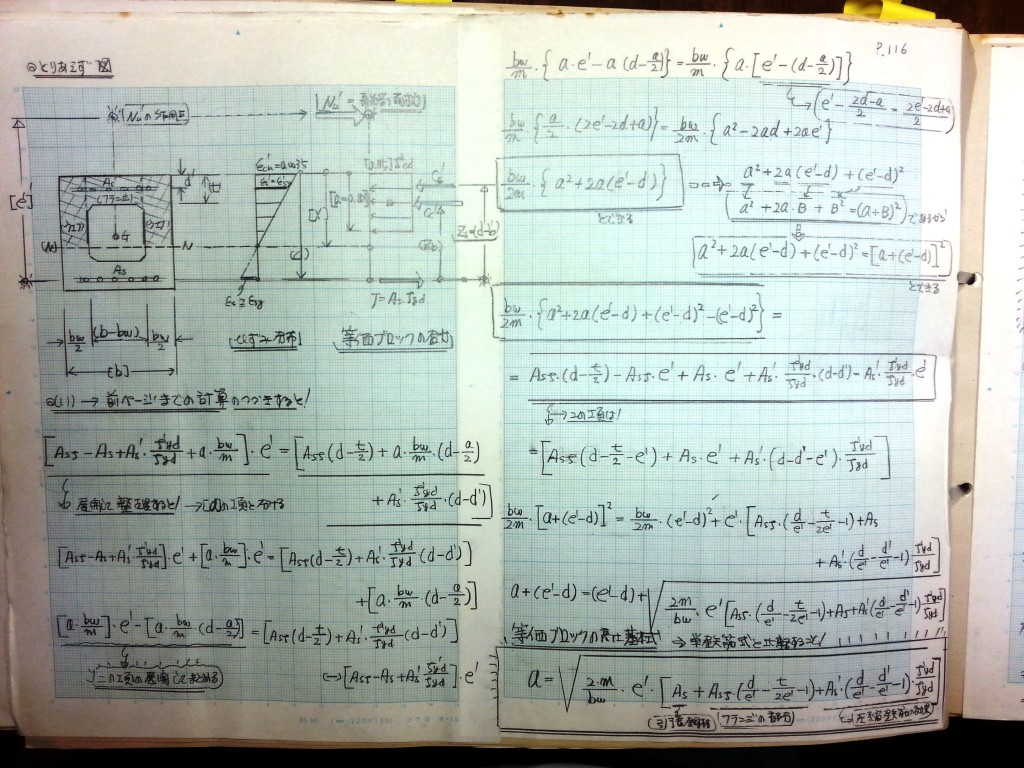 P.116
◎とりあえず図
[Nu'の作用点]
Nu'=
εcu'=0.0035
As'
(フランジ)
d'
t
[e']
G
N
[X]
(d)
As
εs≧εsy
T=As・fyd
Zs=(d-b)
bw/2 (b-bw) bw/2
[b]
[ひずみ分布]
[等価ブロックの応力]
◎(11)→前ページまでの計算のつづきすると!
[Asf-As+As'・f'yd/fyd+a・bw/m]・e'=[Asf(d-t/2)+a・bw/m・(d-a/2)
+As'・f'yd/fyd・(d-d')]
展開して整理すると!
[Asf-As+As'f'yd/fyd]・e'+[a・bw/m]・e'=[Asf(d-t/2)+As'・f'yd/fyd(d-d')]
+[a・bw/m・(d-a/2)]
[a・bw/m]・e'-[a・bw/m・(d-a/2)]=[Asf(d-t/2)+As'・f'yd/fyd(d-d')]
この項の展開してまとめる
(-)[Asf-As+As'f'yd/fyd]・e'
bw/m・{a・e'-a(d-a/2)}=bw/m・{a・[e'-(d-a/2)]}
(e'-2d-a/2=2e'-2d+a/2)
bw/m・{a/2・(2e'-2d+a)}=bw/2m・{a²-2ad+2ae'}
bw/2m・{a²+2a(e'-d)} ⇒ a²+2a(e'-d)+(e'-d)²
とできる
(a²+2a・B+B²=(a+B)²)であるから
a²+2a(e'-d)+(e'-d)²=[a+(e'-d)]²
とできる
bw/2m・{a²+2a(e'-d)+(e'-d)²-(e'-d)²}=
=Asf・(d-t/2)-Asf・e'+As・e'+As'・f'yd/fyd・(d-d')-As'・f'yd/fyd・e'
→この項は!
=[Asf(d-t/2-e')+As・e'+As'・(d-d'-e')・f'yd/fyd]
bw/2m・[a+(e'-d)]²=bw/2m・(e'-d)²+e'・[Asf・(d/e'-t/2e'-1)+As
+As'・(d/e'-d'/e'-1)f'yd/fyd]
a+(e'-d)=(e'-d)+√2m/bw・e'[Asf・(d/e'-t/2e'-1)+As+As'(d/e'-d'/e'-1)f'yd/fyd]
等価ブロックの高さ基本式 ⇒ 単鉄筋式と比較すると!
a=√2・m/bw・e'・[As+Asf(d/e'-t/2e'-1)+As'・(d/e'-d'/e'-1)・f'yd/fyd]
(引張鋼材) (フランジの部分)